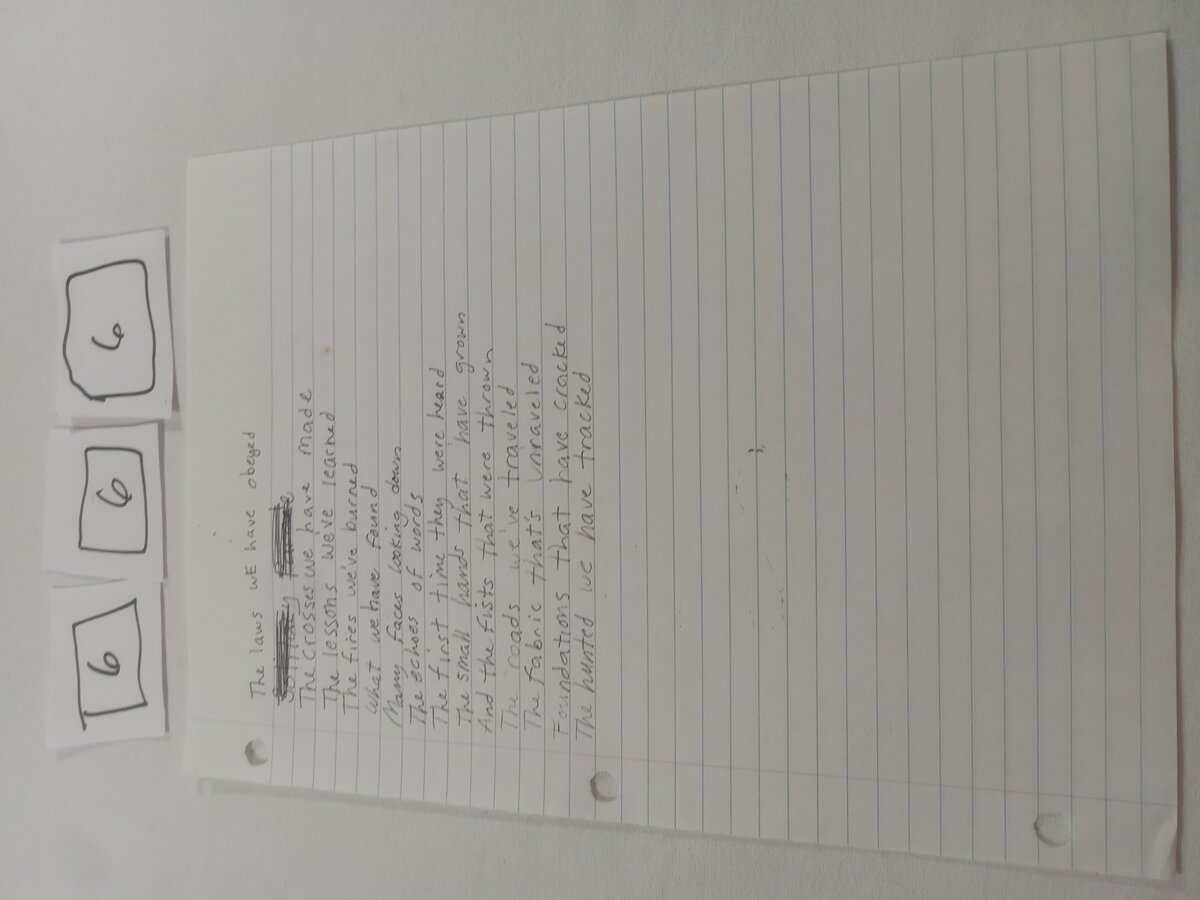 6 6 6
The laws wE have obeyed
The crosses we have made
The lessons we've learned
The fires we've burned
What we have found
Many faces looking down
The echoes of words
The first time they were heard
The small hands that have grown
And the fists that were thrown
The roads we've traveled
The fabric that's unraveled
Foundations that have cracked
The hunted we have tracked